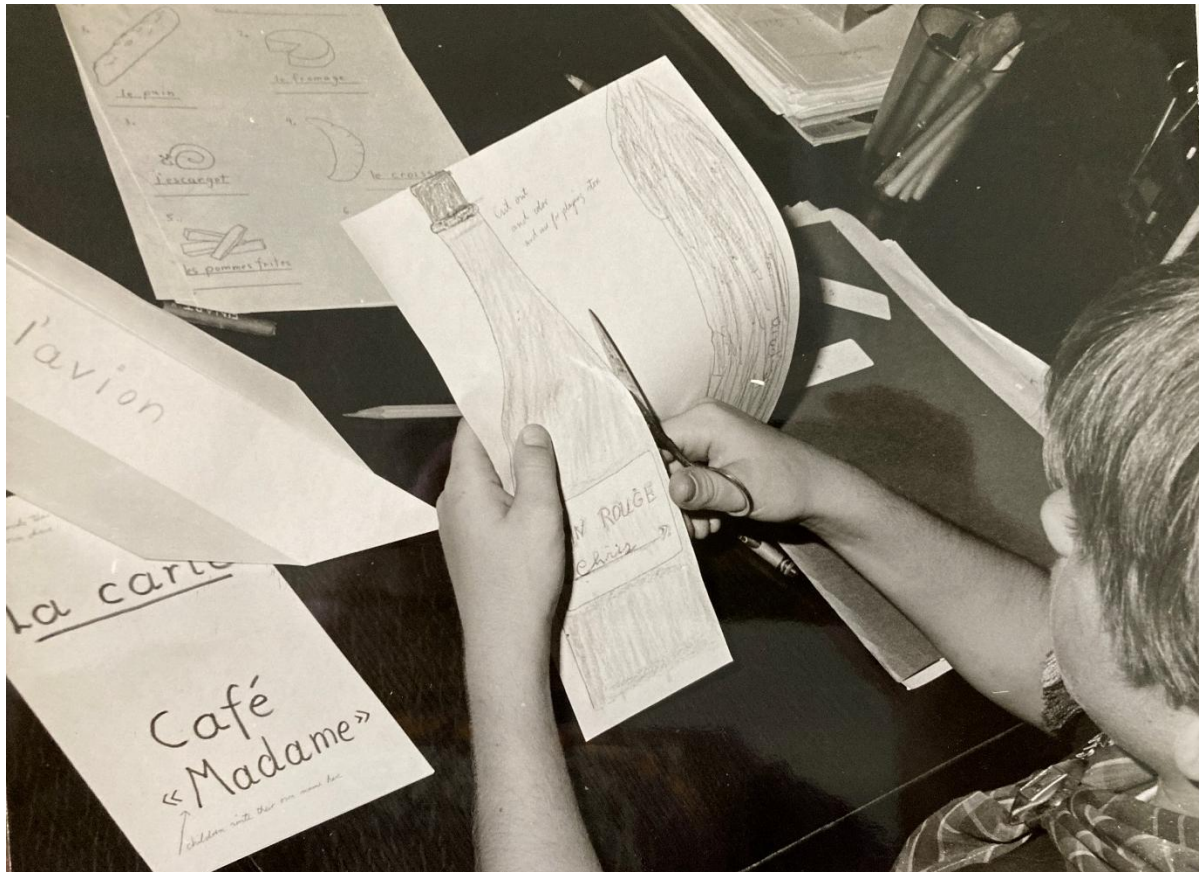 1.
2.
le pain
le fromage
3.
4.
l'escargot
le croiss
5.
6.
les pommes frites
Cut out
and color
and use for playing store
l'avion
N ROUGE
Chris »
La carte
Café
« Madame »
children write their own name here